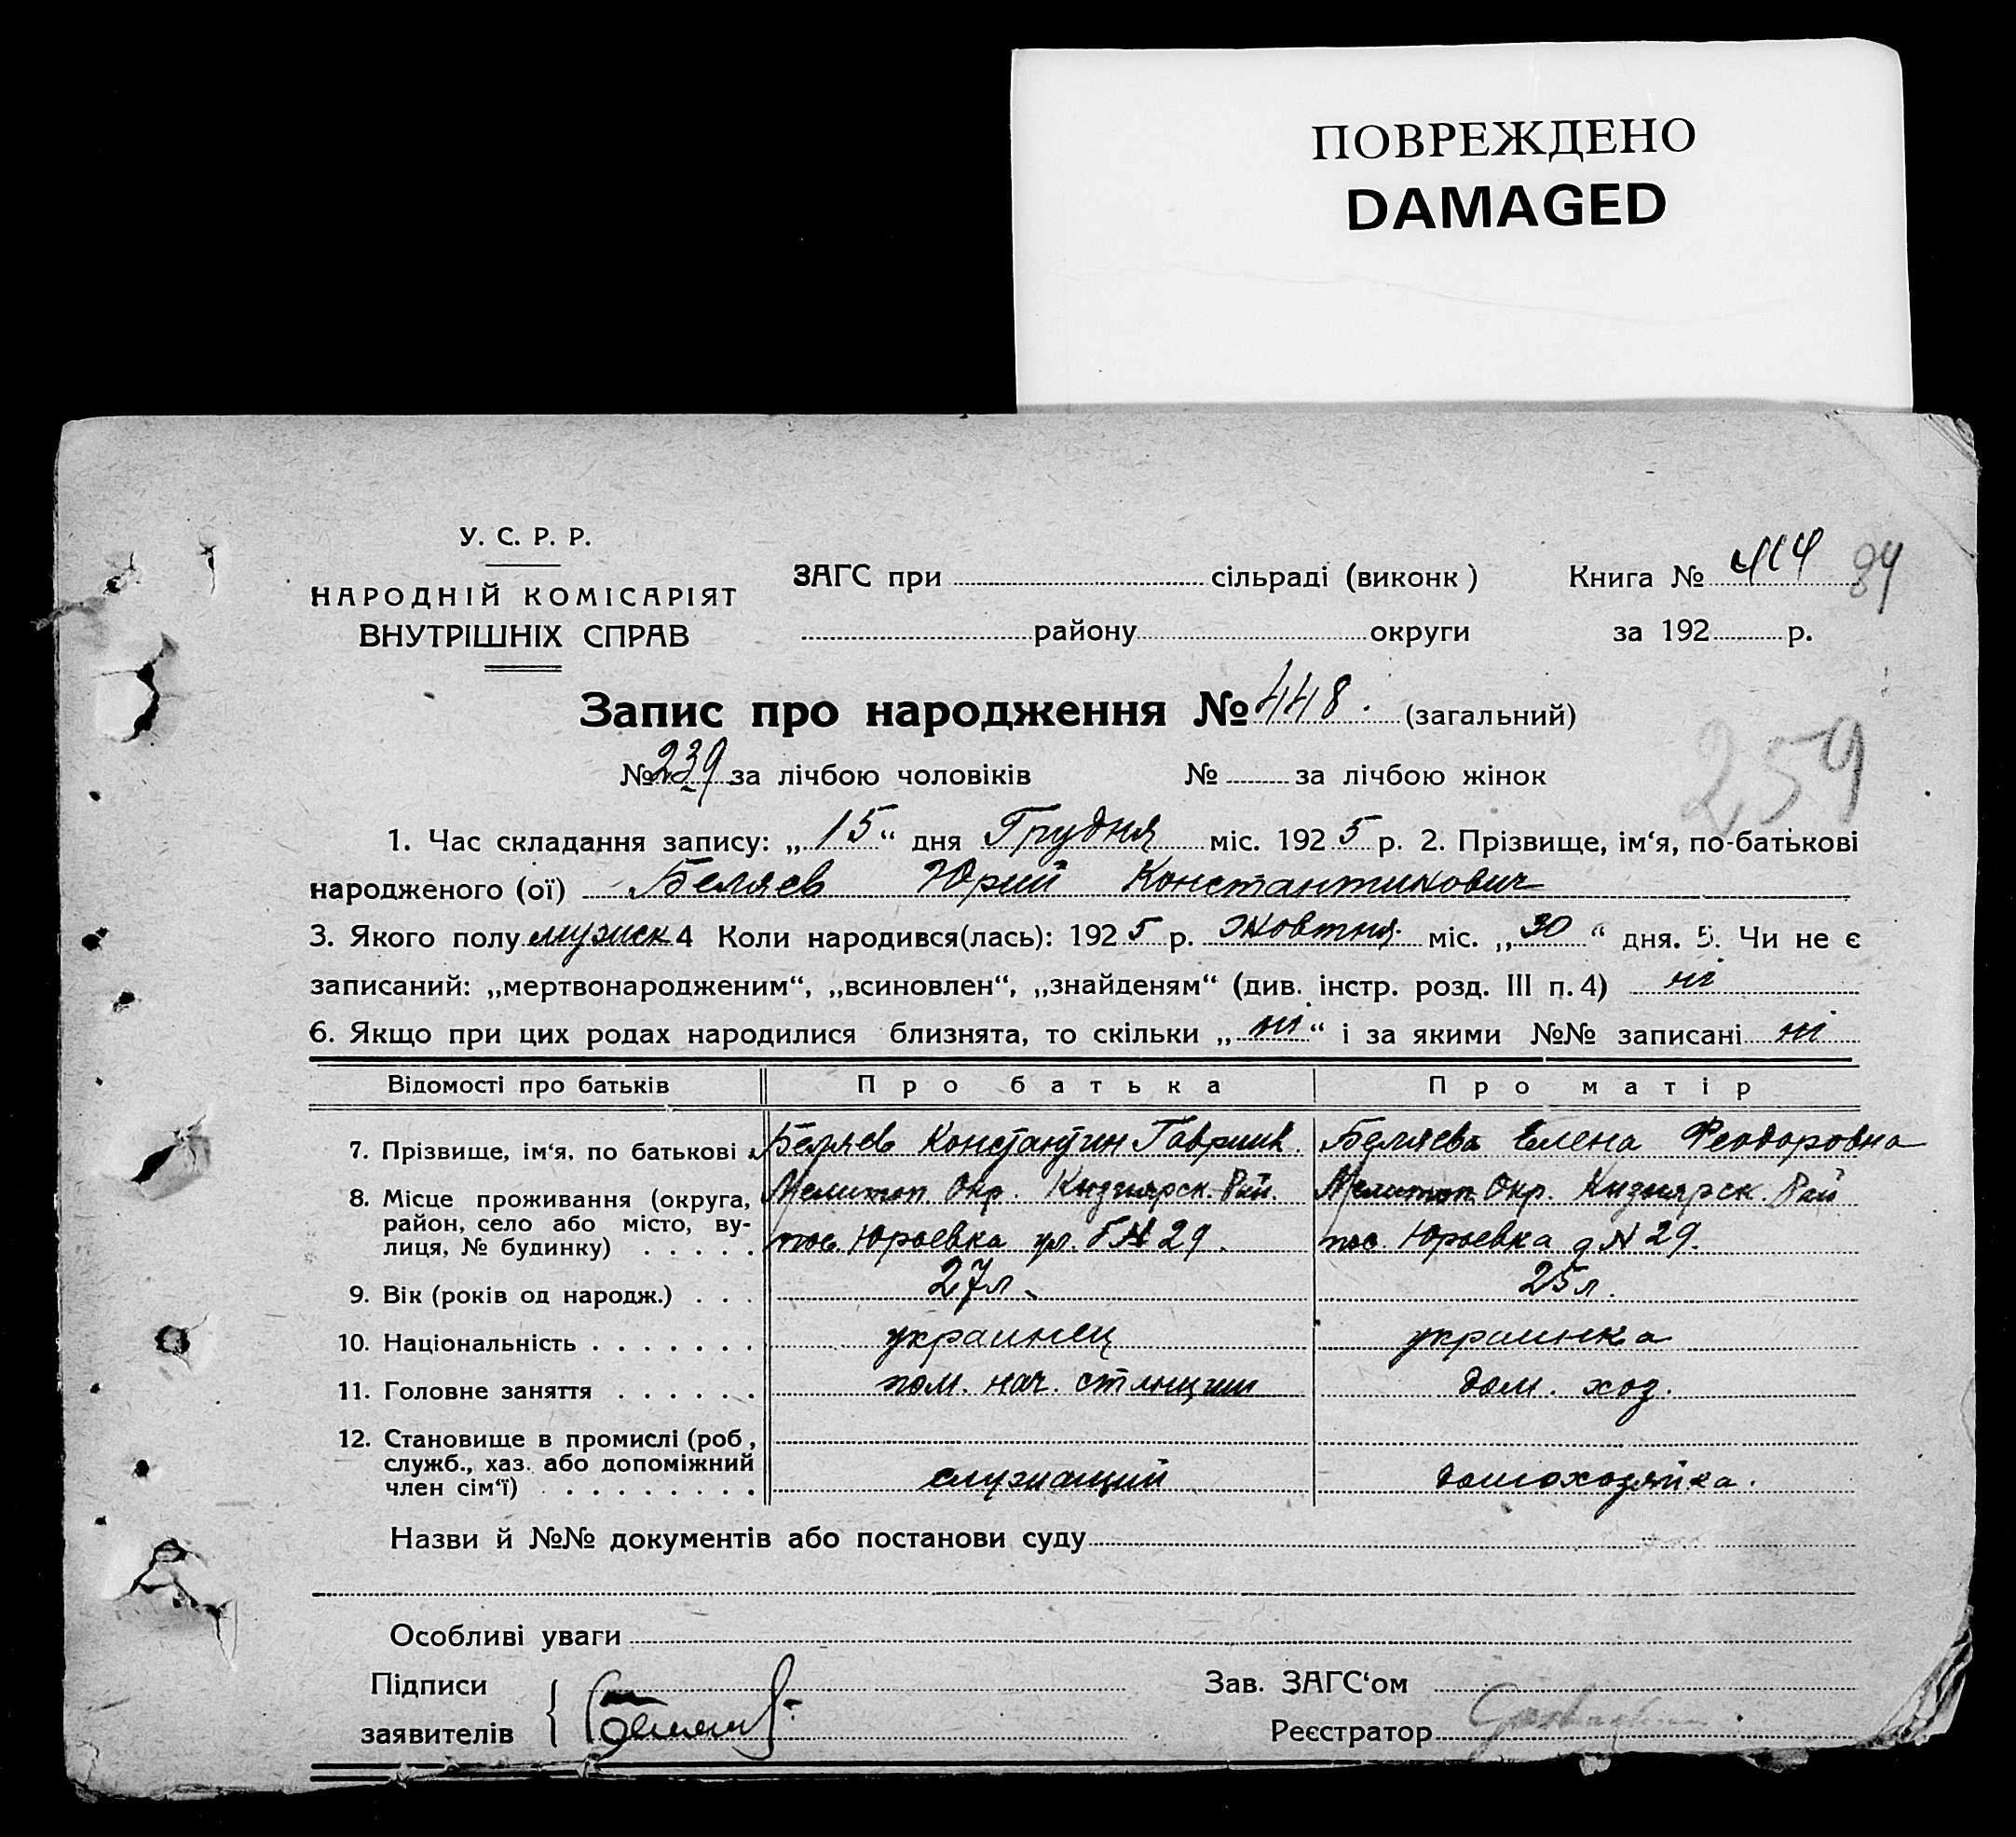 ПОВРЕЖДЕНО
DAMAGED
У. С. Р. Р.
НАРОДНІЙ КОМІСАРІЯТ
ВНУТРІШНІХ СПРАВ
ЗАГС при сільраді (виконк)
району округи
Книга № 414 84
за 192 р.
Запис про народження № 448. (загальний)
№ 239 за лічбою чоловіків № за лічбою жінок
259
1. Час складання запису: „15“ дня Грудня міс. 1925 р. 2. Прізвище, ім‘я, по-батькові
народженого (ої) Беляев Юрий Константинович
3. Якого полу мужск 4 Коли народився(лась): 1925 р. Жовтня міс. „30“ дня. 5. Чи не є
записаний: „мертвонародженим“, „всиновлен“, „знайденям“ (див. інстр. розд. III п. 4) ні
6. Якщо при цих родах народилися близнята, то скільки „ні“ і за якими №№ записані ні
Відомості про батьків Про батька Про матір
7. Прізвище, ім‘я, по батькові Беляев Константин Гавриил. Беляева Елена Феодоровна
8. Місце проживання (округа, район, село або місто, вулиця, № будинку) Мелитоп. Окр. Рай. Мелитоп. Окр. Рай
пос. Юрьевка ул. N 29. пос. Юрьевка д N 29.
9. Вік (років од народж.) 27 л. 25 л.
10. Національність украинец украинка
11. Головне заняття пом. нач. станции дом. хоз.
12. Становище в промислі (роб, служб., хаз. або допоміжний член сім‘ї) служащий домохозяйка.
Назви й №№ документів або постанови суду
Особливі уваги
Підписи
заявителів
Зав. ЗАГС‘ом
Реєстратор